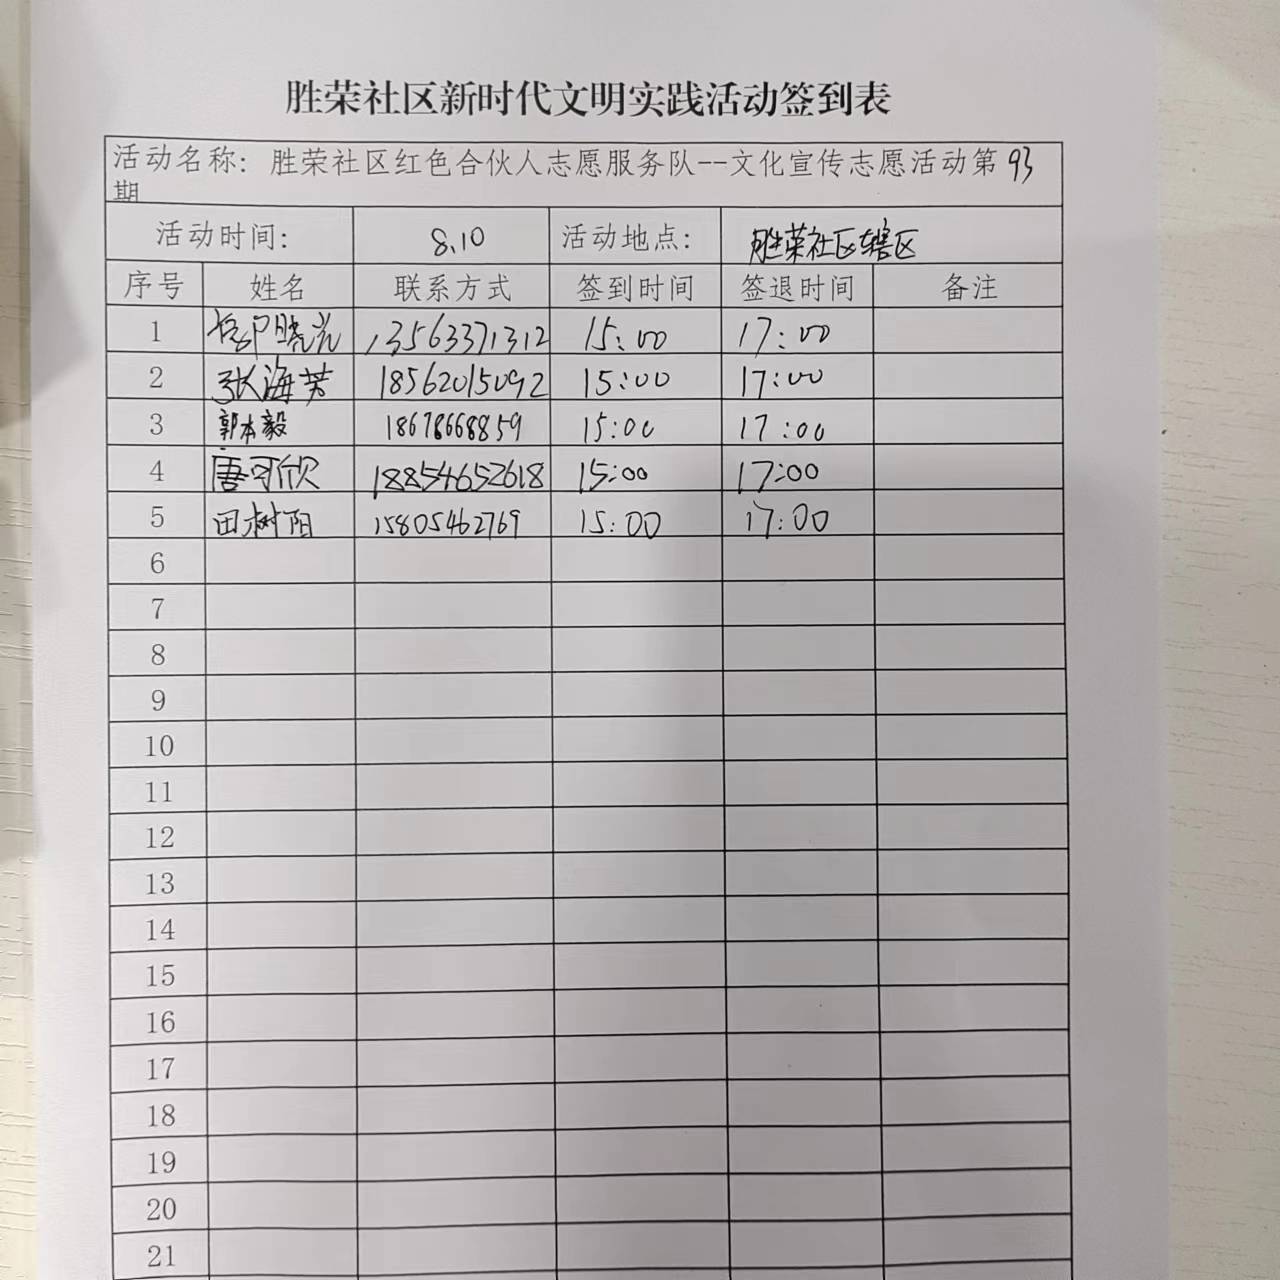 胜荣社区新时代文明实践活动签到表
活动名称: 胜荣社区红色合伙人志愿服务队--文化宣传志愿活动第93
期
活动时间: 8.10 活动地点: 胜荣社区辖区
序号 姓名 联系方式 签到时间 签退时间 备注
1 晓光 13563371312 15:00 17:00
2 张海芳 18562015092 15:00 17:00
3 郭本毅 18678668859 15:00 17:00
4 唐可欣 18854652618 15:00 17:00
5 田树阳 15805462769 15:00 17:00
6
7
8
9
10
11
12
13
14
15
16
17
18
19
20
21